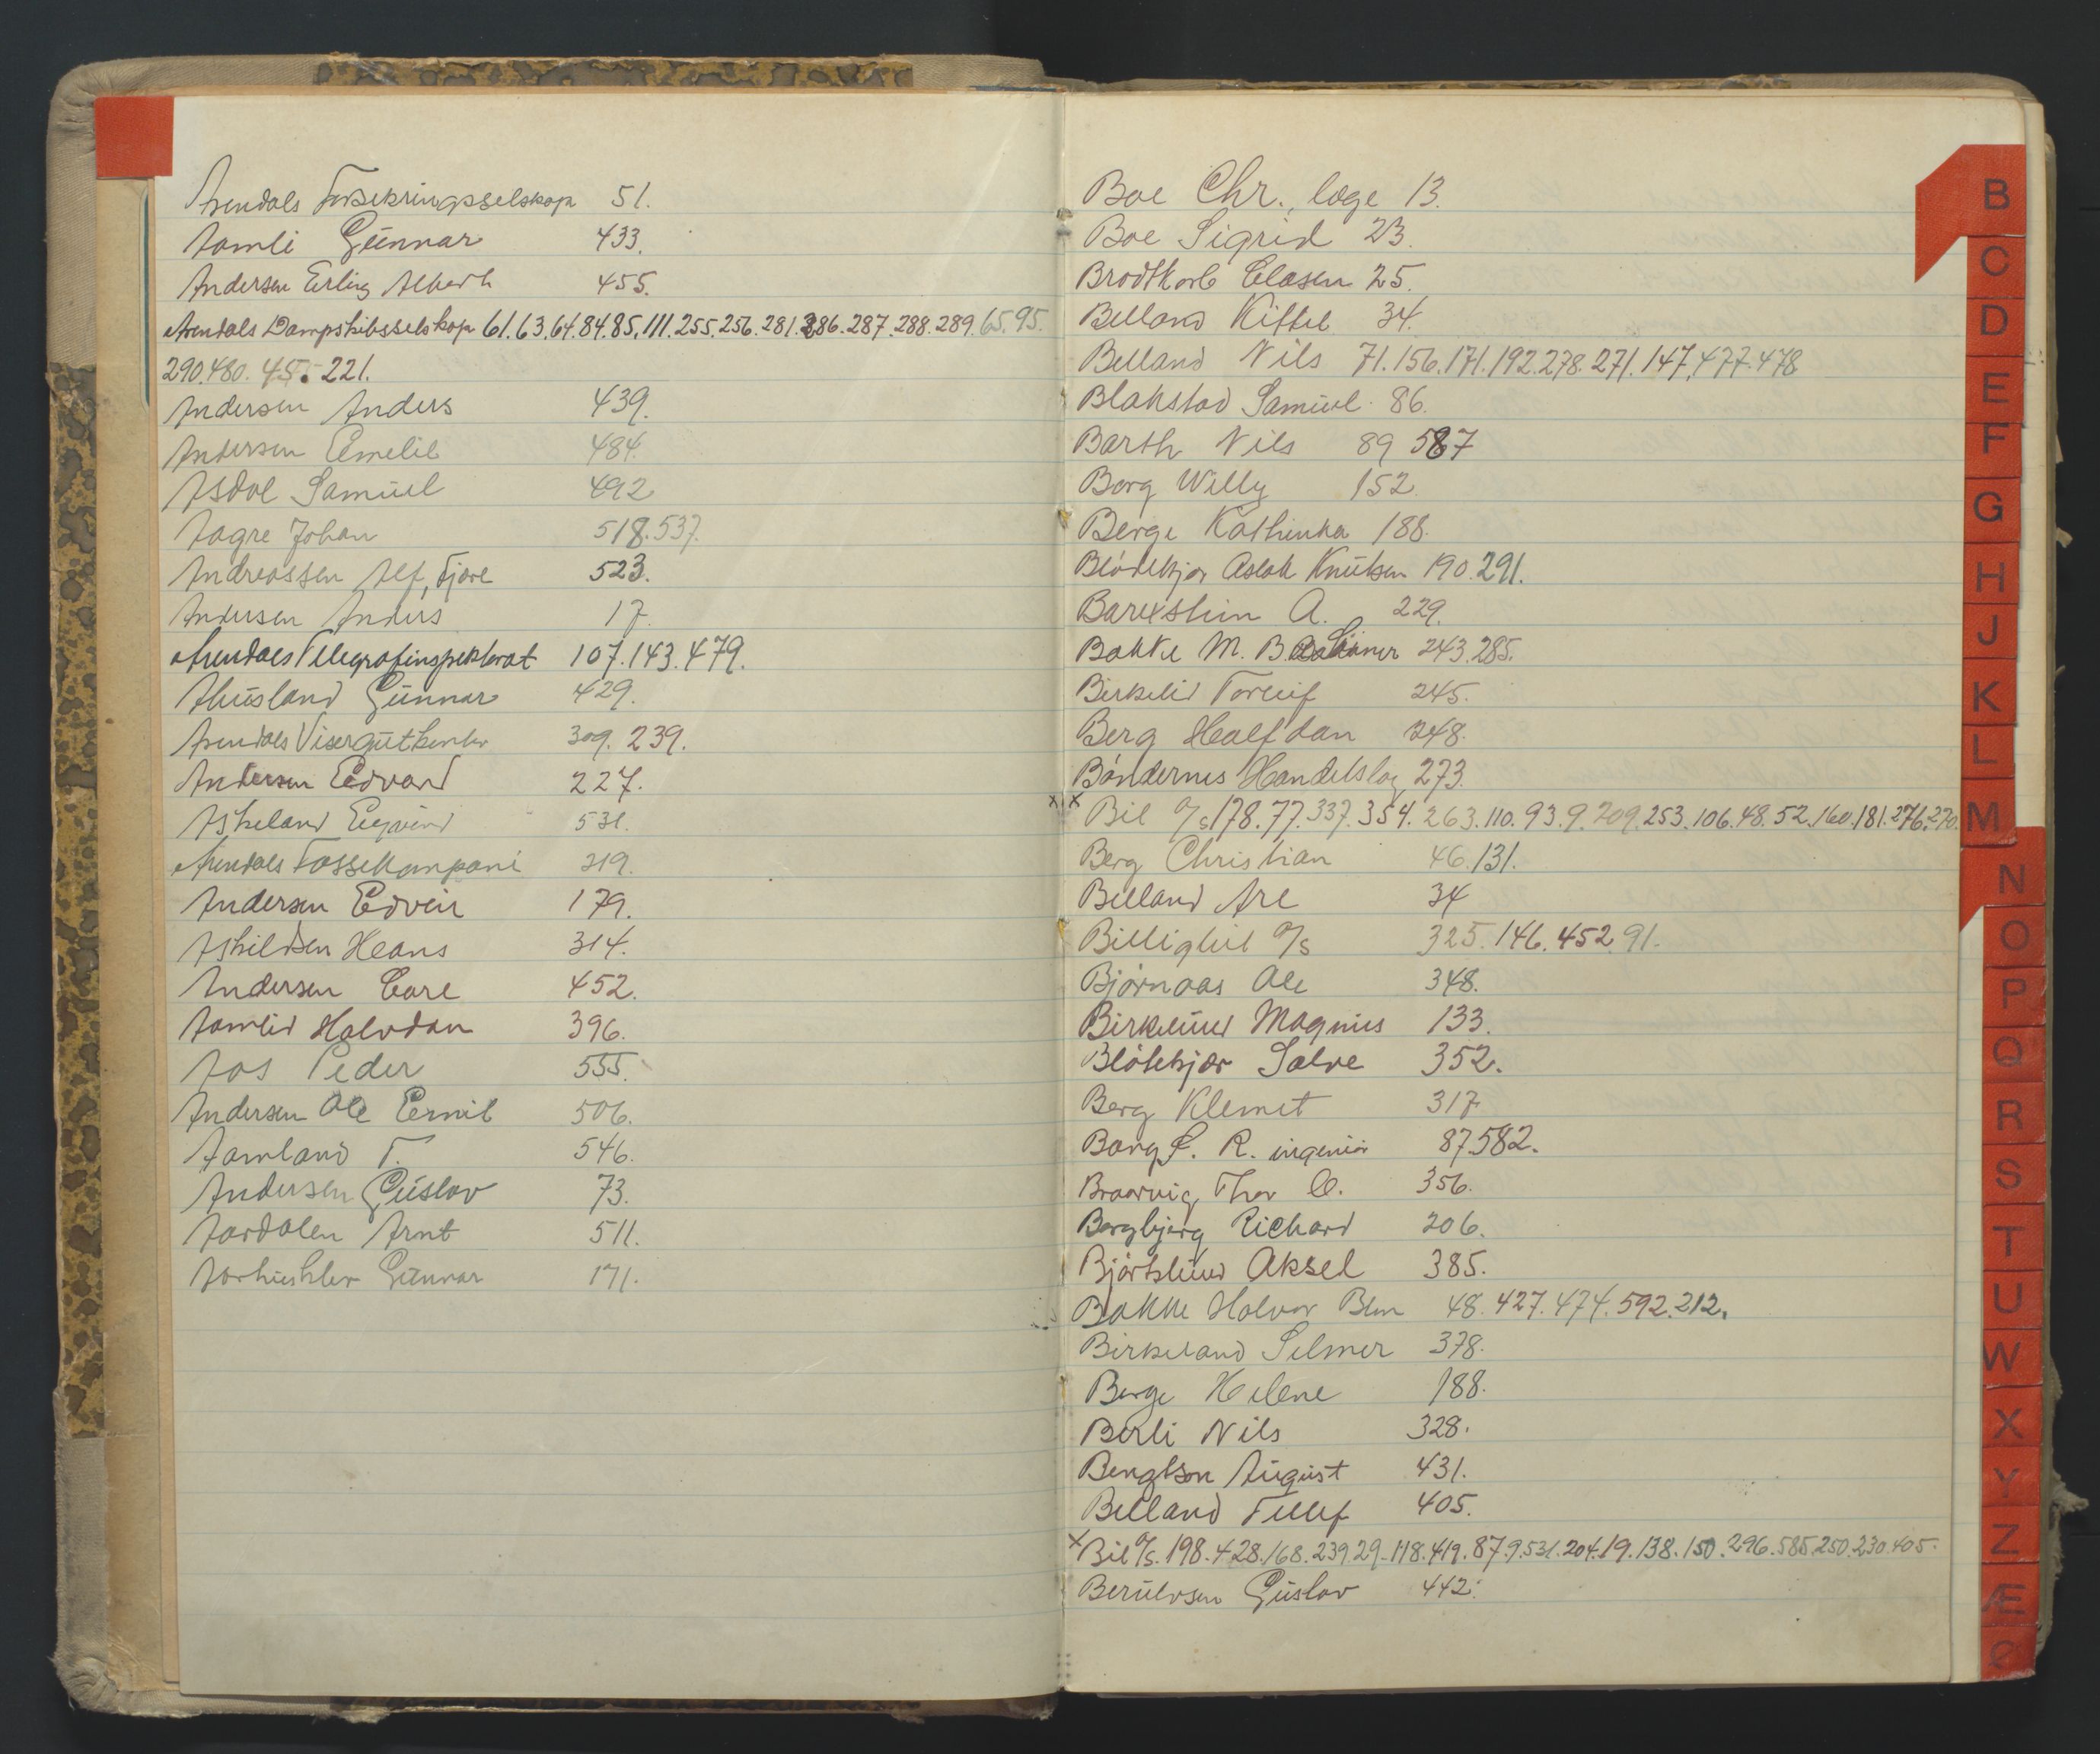 Arendals Forsekringsselskap 51.
Aamli Gunnar 433.
Andersen Erling Alberth 455.
Arendals Dampskibsselskap 61.63.64.84.85.111.255.256.281.286.287.288.289.65.95.
290.480. 45. 221.
Andersen Anders 439.
Andersen Emelie 484.
Asdal Samuel 492
Aagre Johan 518.537.
Andreassen Alf, Fjære 523.
Andersen Anders 17.
Arendals Telegrafinspektorat 107.143.479.
Ausland Gunnar 429.
Arendals Visergutkontor 309. 239.
Andersen Edvard 227.
Askeland Eyvind 531.
Arendals Fossekompani 219.
Andersen Edvin 179.
Askildsen Hans 314.
Andersen Carl 452.
Aamlid Halvdan 396.
Aas Peder 555.
Andersen Ole Emil 506.
Aamland T. 546.
Andersen Gustav 73.
Aardalen Arnt 511.
Gunnar 171.
Boe Chr., læge 13.
Boe Sigrid 23.
Brodtkorb Clasen 25.
Belland Kittel 34.
Belland Nils 71.156.171.192.278.271.147.477.478
Blakstad Samuel 86.
Barth Nils 89 587
Borg Willy 152
Berge Kathinka 188.
Blödekjær Aslak Knutsen 190.291.
A. 229.
Bakke M. B. 243.285.
Birkelid Torleif 245.
Berg Halfdan 248.
Böndernes Handelslag 273.
x x Bil A/S 178.77.337.354.263.110.93.9.209.253.106.48.52.160.181.276.270.
Berg Christian 46.131.
Belland Are 34
A/S 325.146.452.91.
Bjørnaas Ole 348.
Birkelund Magnus 133.
Blötekjær Salve 352.
Berg Klemet 317
Borg S. R. ingeniør 87.582.
Braarvig, Thor O. 356.
Borgbjerg Richard 206.
Björklund Aksel 385.
Bakke Halvor 48.427.474.592.212.
Birkeland Selmer 378.
Berge Helene 188.
Berli Nils 328.
Bengtson August 431.
Belland Tellef 405.
x Bil A/S. 198.428.168.239.29.118.419.87.9.531.204.19.138.150.296.585.250.230.405.
Berulvsen Gustav 442.
B
C
D
E
F
G
H
J
K
L
M
N
O
P
Q
R
S
T
U
W
X
Y
Z
Æ
Ø